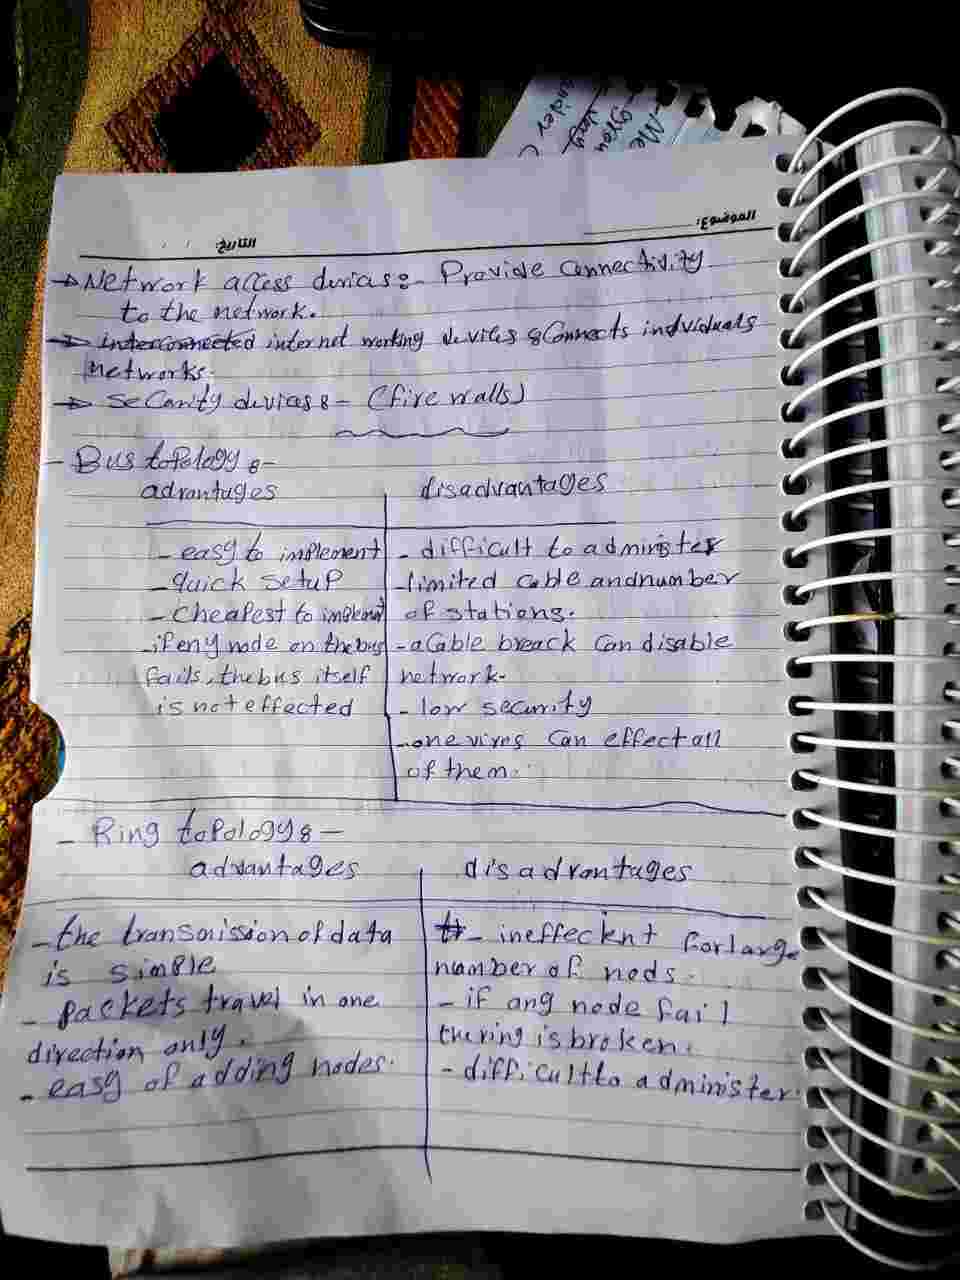 الموضوع:
التاريخ: / /
→ Network access devices:- Provide connectivity
to the network.
→ interconnected internet working devices : Connects individuals
networks.
→ Security devices :- (fire walls)
- Bus topology :-
advantages
disadvantages
- easy to implement
- quick setup
- Cheapest to implement
- if eny node on the bus
fails, the bus itself
is not effected
- difficult to administer
- limited cable and number
of stations.
- a Cable breack can disable
network.
- low security
- one vires can effect all
of them.
- Ring topology :-
advantages
disadvantages
- the transmission of data
is simple
- Packets travel in one
direction only.
- easy of adding nodes.
- ineffecient for large
number of nods.
- if any node fail
the ring is broken.
- difficult to administer.